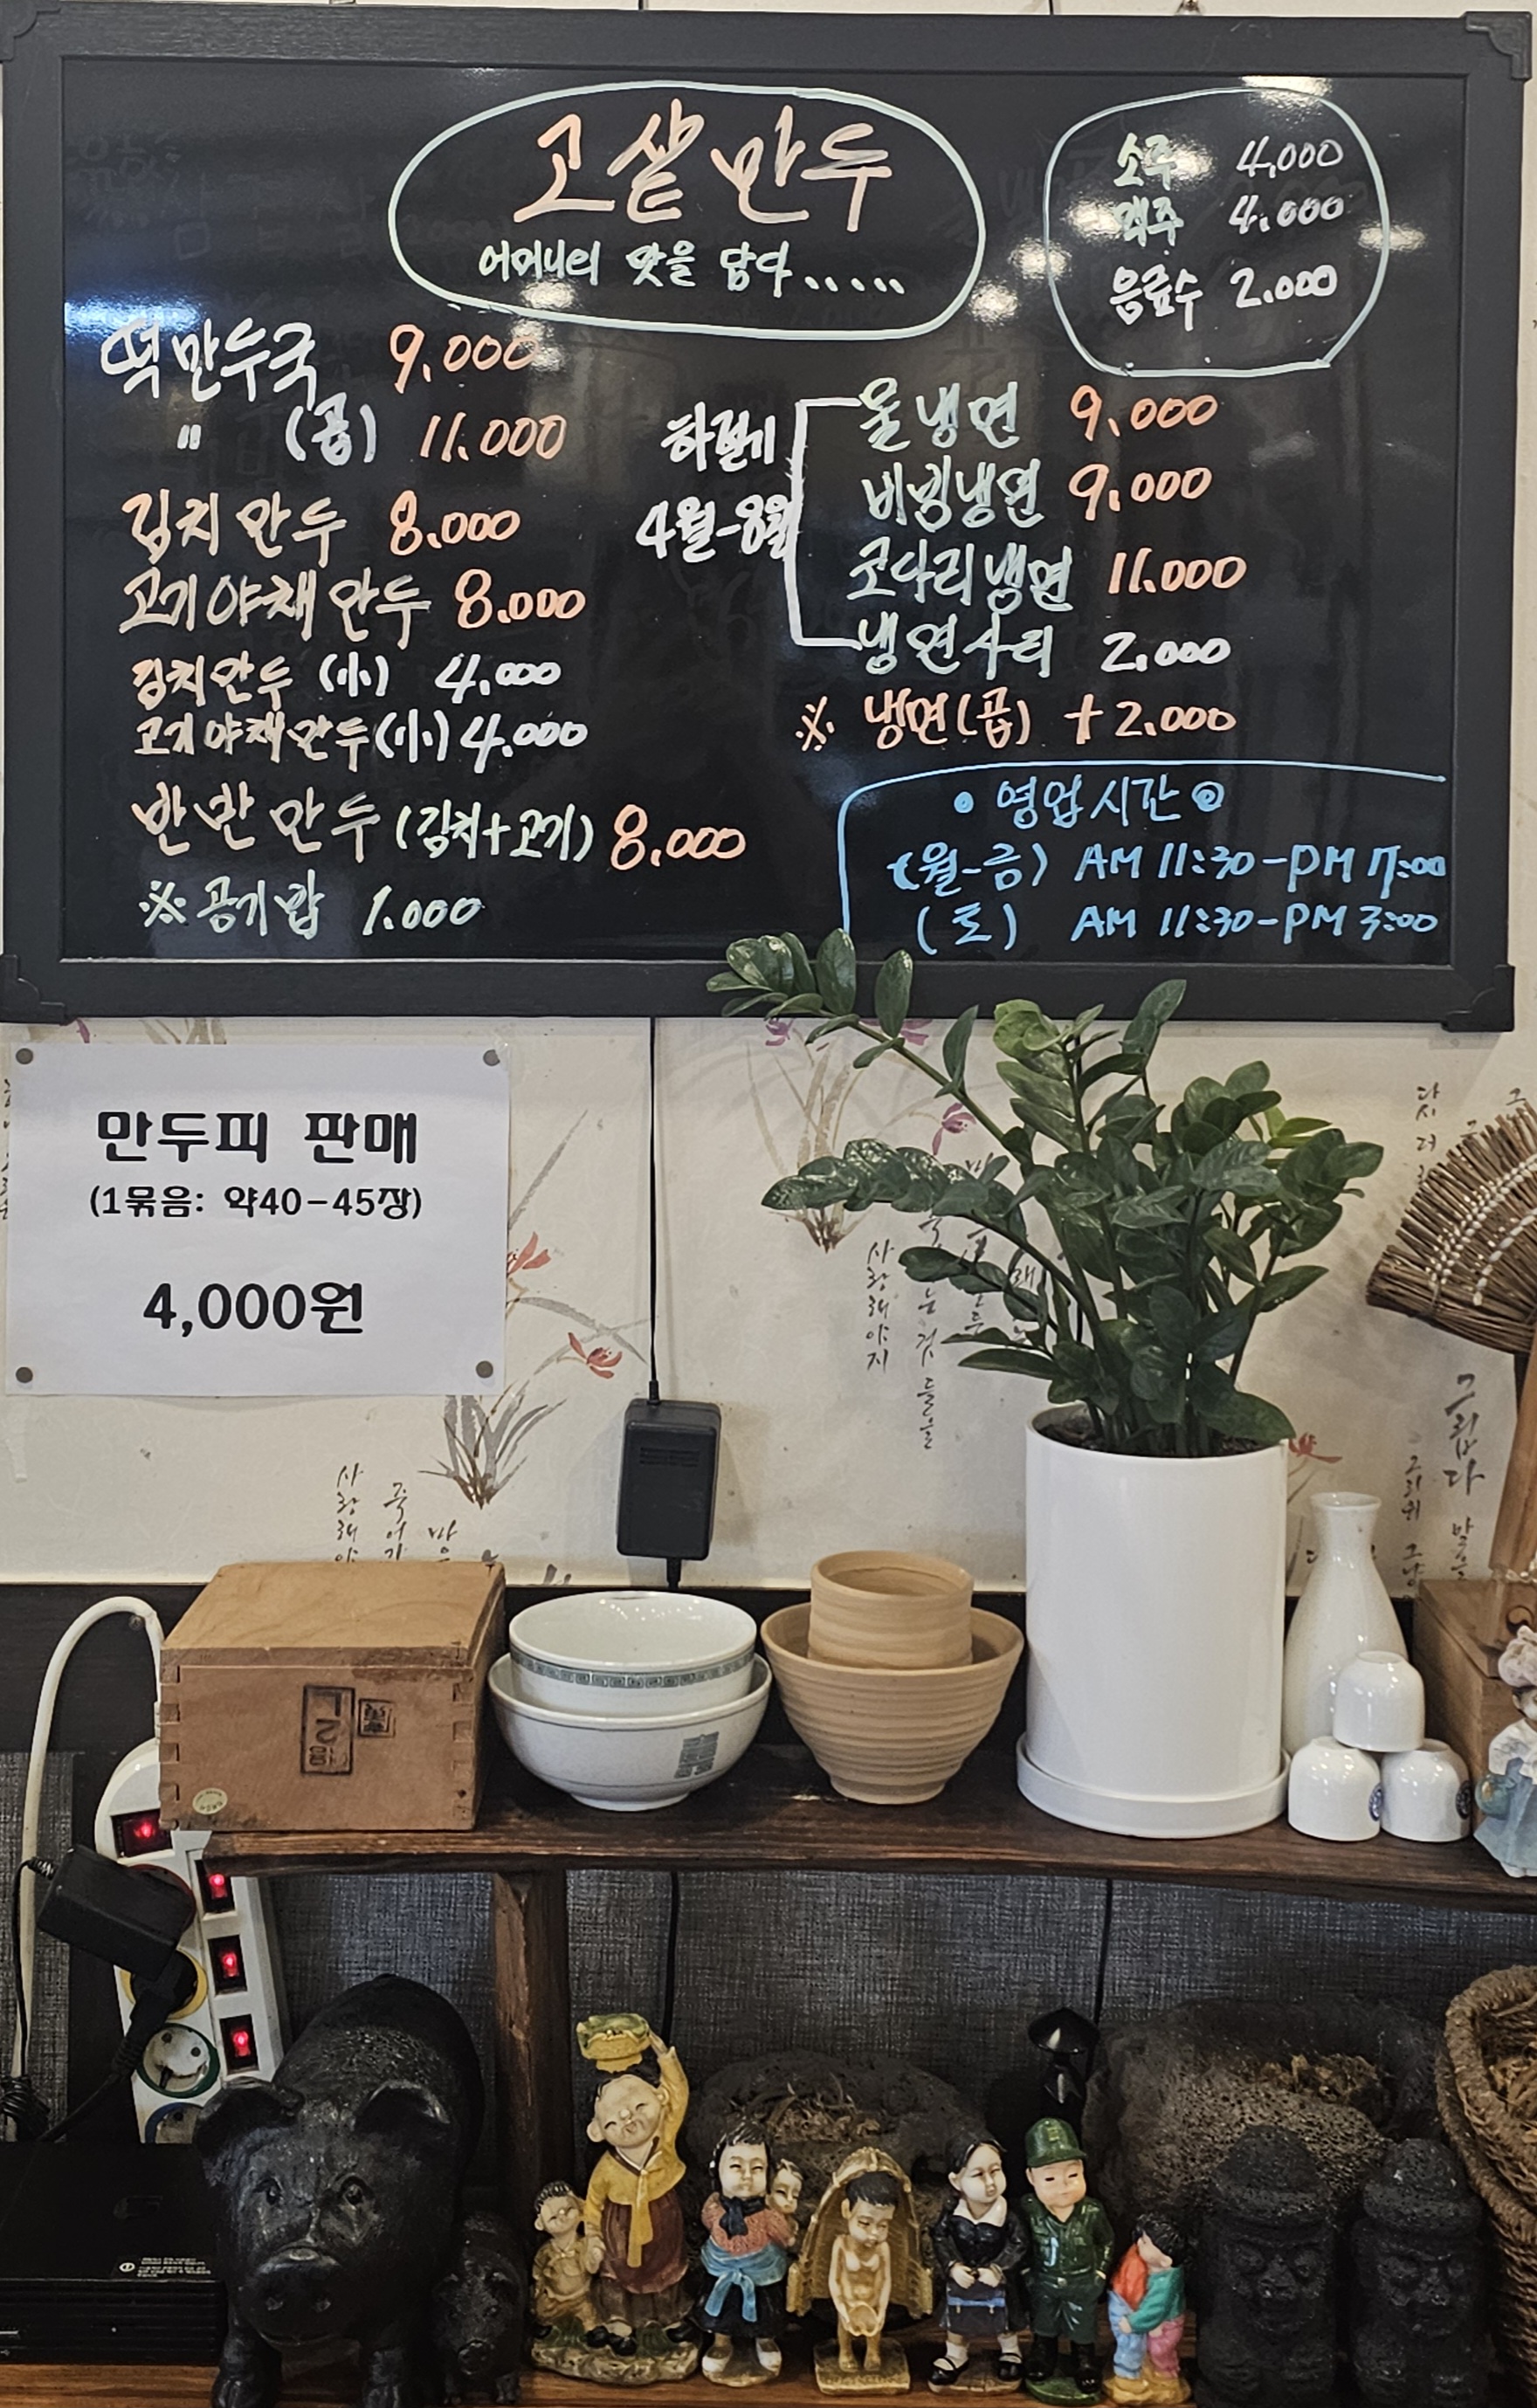 고샅만두
어머니의 맛을 담다.....
소주 4,000
맥주 4,000
음료수 2,000
떡만두국 9,000
" (곱) 11,000
김치만두 8,000
고기야채만두 8,000
김치만두 (小) 4,000
고기야채만두(小) 4,000
반반만두 (김치+고기) 8,000
※ 공기밥 1,000
하절기
4월-8월
물냉면 9,000
비빔냉면 9,000
코다리냉면 11,000
냉면사리 2,000
※ 냉면(곱) +2,000
영업시간
(월-금) AM 11:30-PM 7:00
(토) AM 11:30-PM 3:00
만두피 판매
(1묶음: 약40-45장)
4,000원
사랑해야지
그립다